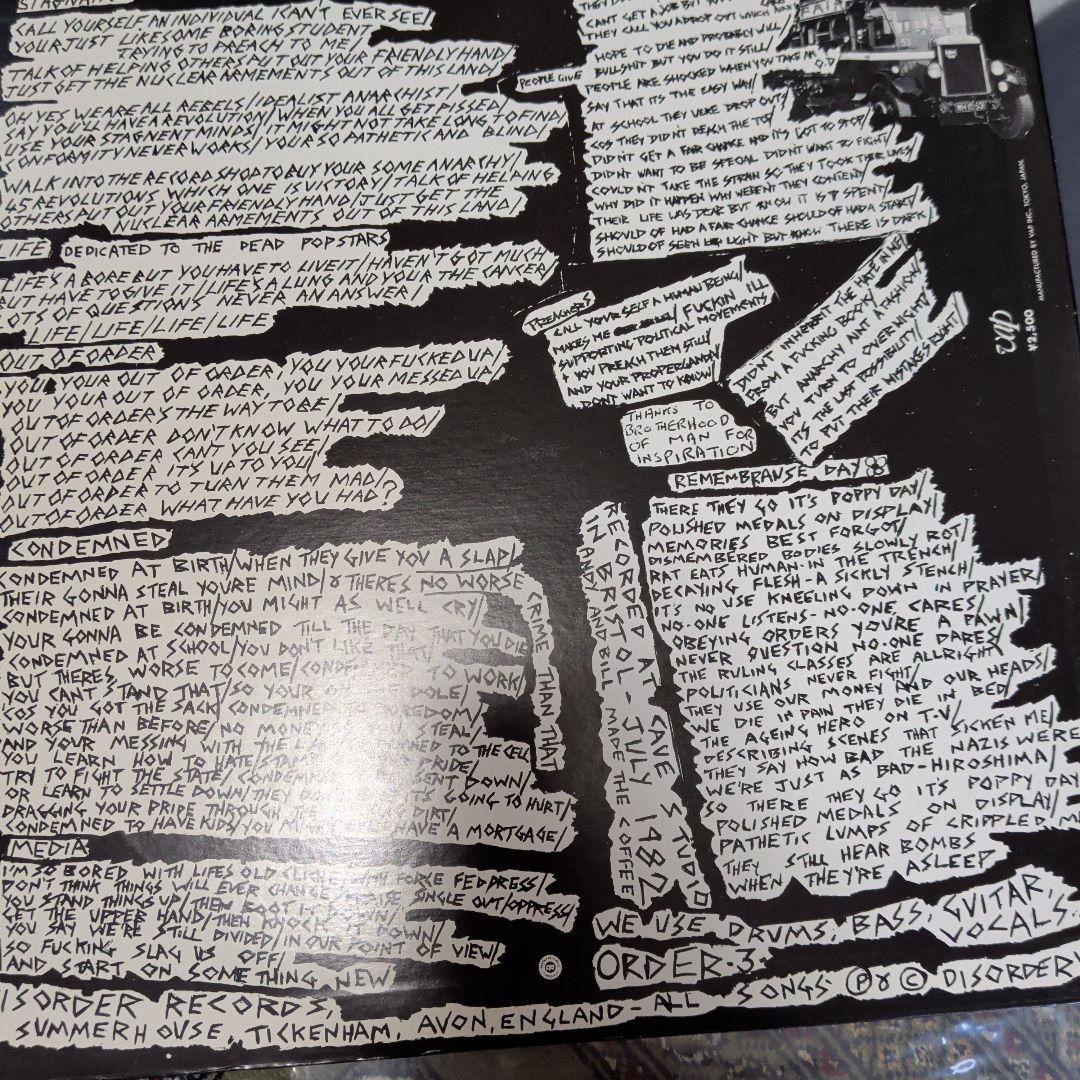 STAGNATI
CALL YOURSELF AN INDIVIDUAL I CAN'T EVER SEE/
YOUR JUST LIKE SOME BORING STUDENT
TRYING TO PREACH TO ME/
TALK OF HELPING OTHERS PUT OUT YOUR FRIENDLY HAND/
JUST GET THE NUCLEAR ARMEMENTS OUT OF THIS LAND/
OH YES WE ARE ALL REBELS/IDEALIST ANARCHIST/
SAY YOU'LL HAVE A REVOLUTION/WHEN YOU ALL GET PISSED/
USE YOUR STAGNENT MINDS/IT MIGHT NOT TAKE LONG TO FIND/
CONFORMITY NEVER WORKS/YOUR SO PATHETIC AND BLIND/
WALK INTO THE RECORD SHOP TO BUY YOUR SOME ANARCHY/
45 REVOLUTIONS WHICH ONE IS VICTORY/TALK OF HELPING
OTHERS PUT OUT YOUR FRIENDLY HAND/JUST GET THE
NUCLEAR ARMEMENTS OUT OF THIS LAND/
LIFE DEDICATED TO THE DEAD POPSTARS
LIFE'S A BORE BUT YOU HAVE TO LIVE IT/HAVEN'T GOT MUCH
BUT HAVE TO GIVE IT/LIFE'S A LUNG AND YOUR THE CANCER
LOTS OF QUESTIONS NEVER AN ANSWER/
LIFE/LIFE/LIFE/LIFE
OUT OF ORDER
YOU YOUR OUT OF ORDER, YOU YOUR FUCKED UP/
YOU YOUR OUT OF ORDER, YOU YOUR MESSED UP/
OUT OF ORDERS THE WAY TO BE/
OUT OF ORDER DON'T KNOW WHAT TO DO/
OUT OF ORDER CAN'T YOU SEE/
OUT OF ORDER IT'S UP TO YOU/
OUT OF ORDER TO TURN THEM MAD/
OUT OF ORDER WHAT HAVE YOU HAD?
CONDEMNED
CONDEMNED AT BIRTH/WHEN THEY GIVE YOU A SLAP/
THEIR GONNA STEAL YOU'RE MIND/& THERE'S NO WORSE
CRIME THAN THAT
CONDEMNED AT BIRTH/YOU MIGHT AS WELL CRY/
YOUR GONNA BE CONDEMNED TILL THE DAY THAT YOU DIE
CONDEMNED AT SCHOOL/YOU DON'T LIKE THAT/
BUT THERE'S WORSE TO COME/CONDEMNED TO WORK/
YOU CAN'T STAND THAT/SO YOUR ON THE DOLE/
COS YOU GOT THE SACK/CONDEMNED TO BOREDOM/
WORSE THAN BEFORE/NO MONEY STEAL/
AND YOUR MESSING WITH THE LAW/CONDEMNED TO THE CELL
YOU LEARN HOW TO HATE/ PRIDE/
TRY TO FIGHT THE STATE/CONDEMNED SENT DOWN/
OR LEARN TO SETTLE DOWN/THEY IT'S GOING TO HURT/
DRAGGING YOUR PRIDE THROUGH THE DIRT/
CONDEMNED TO HAVE KIDS/YOU MIGHT HAVE A MORTGAGE/
MEDIA
I'M SO BORED WITH LIFES OLD CLICHE WITH FORCE FED PRESS/
DON'T THINK THINGS WILL EVER CHANGE SINGLE OUT/OPPRESS/
YOU STAND THINGS UP/THEN BOOT IT DOWN/
GET THE UPPER HAND/THEN KNOCK IT DOWN/
YOU SAY WE'RE STILL DIVIDED/IN OUR POINT OF VIEW/
SO FUCKING SLAG US OFF/
AND START ON SOMETHING NEW
PEOPLE GIVE
CANT GET A JOB BUT
THEY CALL YOU A DROP OUT WHICH
HOPE TO DIE AND PROBABLY WILL
BULLSHIT BUT YOU DO IT STILL/
PEOPLE ARE SHOCKED WHEN YOU TAKE AN O.D
SAY THAT ITS THE EASY WAY/
AT SCHOOL THEY WERE DROP OUTS
COS THEY DIDNT REACH THE TOP
DIDNT GET A FAIR CHANCE AND ITS GOT TO STOP/
DIDNT WANT TO BE SPECIAL DIDNT WANT TO FIGHT/
COULDNT TAKE THE STRAIN SO THEY TOOK THEIR LIVES/
WHY DID IT HAPPEN WHY WERENT THEY CONTENT/
THEIR LIFE WAS DEAR BUT KNOW IT IS SPENT/
SHOULD OF HAD A FAIR CHANCE SHOULD OF HAD A START/
SHOULD OF SEEN LIGHT BUT KNOW THERE IS DARK/
PREACHERS
CALL YOURSELF A HUMAN BEING/
MAKES ME FUCKIN ILL
SUPPORTING POLITICAL MOVEMENTS
& YOU PREACH THEM STILL/
AND YOUR PROPERGANDA/
I DONT WANT TO KNOW/
DIDNT INHERENT THE HATE IN ME/
FROM A FUCKING BOOK/
BUT ANARCHY AINT A FASHION/
YOU TURN TO OVERNIGHT/
ITS THE LAST POSIBILITY/
TO PUT THEIR MISTAKES RIGHT/
THANKS TO
BROTHERHOOD
OF MAN FOR
INSPIRATION
REMEMBRANSE DAY
THERE THEY GO IT'S POPPY DAY/
POLISHED MEDALS ON DISPLAY/
MEMORIES BEST FORGOT/
DISMEMBERED BODIES SLOWLY ROT/
RAT EATS HUMAN IN THE TRENCH/
DECAYING FLESH-A SICKLY STENCH/
IT'S NO USE KNEELING DOWN IN PRAYER/
NO-ONE LISTENS-NO-ONE CARES/
OBEYING ORDERS YOU'RE A PAWN/
NEVER QUESTION NO-ONE DARES/
THE RULING CLASSES ARE ALLRIGHT
POLITICIANS NEVER FIGHT/
THEY USE OUR MONEY AND OUR HEADS/
WE DIE IN PAIN THEY DIE IN BED/
THE AGEING HERO ON T.V/
DESCRIBING SCENES THAT SICKEN ME/
THEY SAY HOW BAD THE NAZIS WERE
WE'RE JUST AS BAD-HIROSHIMA/
SO THERE THEY GO IT'S POPPY DAY
POLISHED MEDALS ON DISPLAY/
PATHETIC LUMPS OF CRIPPLED/M
THEY STILL HEAR BOMBS
WHEN THEY'RE ASLEEP
RECORDED AT CAVE STUDIO
IN BRISTOL-JULY 1982
ANDY AND BILL MADE THE COFFEE
WE USE DRUMS, BASS, GUITAR,
VOCALS.
ORDER 3
ISORDER RECORDS,
SUMMERHOUSE, TICKENHAM, AVON, ENGLAND-ALL SONGS Ⓟ & © DISORDER
MANUFACTURED BY VAP INC., TOKYO, JAPAN
vap
¥2,500